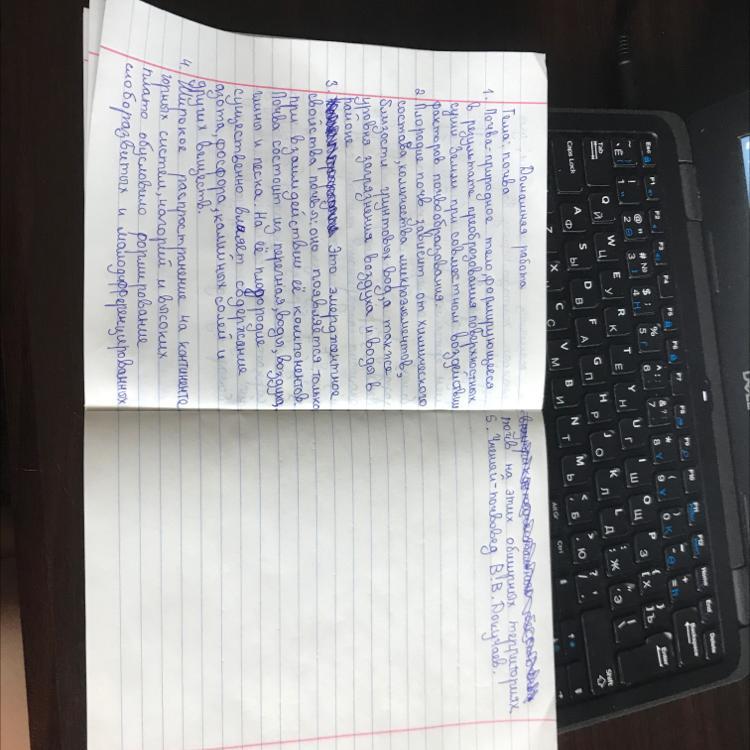 Домашная работа
Тема: почва
1. Почва-природное тело, формирующееся
в результате преобразования поверхностных
суши Земли при совместном воздействии
факторов почвообразования.
2 Плородие почв зависит от химического
состава, количества микроэлементов,
близости грунтовых вод, а также
уровня загрязнения воздуха и воды в
районе
3. Это эмерджентное
свойство почвы: оно появляется только
при взаимодействии её компонентов.
Почва состоит из перегная, воды, воздуха,
глины и песка. На её плодородие
существенно влияет содержание
азота, фосфора, калийных солей и
других веществ.
4. Широкое распространение на континенте
горных систем, нагорий и высоких
плато обусловило формирование
слоборазвитых и малодифференцированных
почв на этих обширных территориях
5. Учений-почвовед В.В. Докучаев.
Caps Lock
Tab
Esc
Home
End
Delete
Backspace
Enter
Shift
Alt Gr
Ctrl